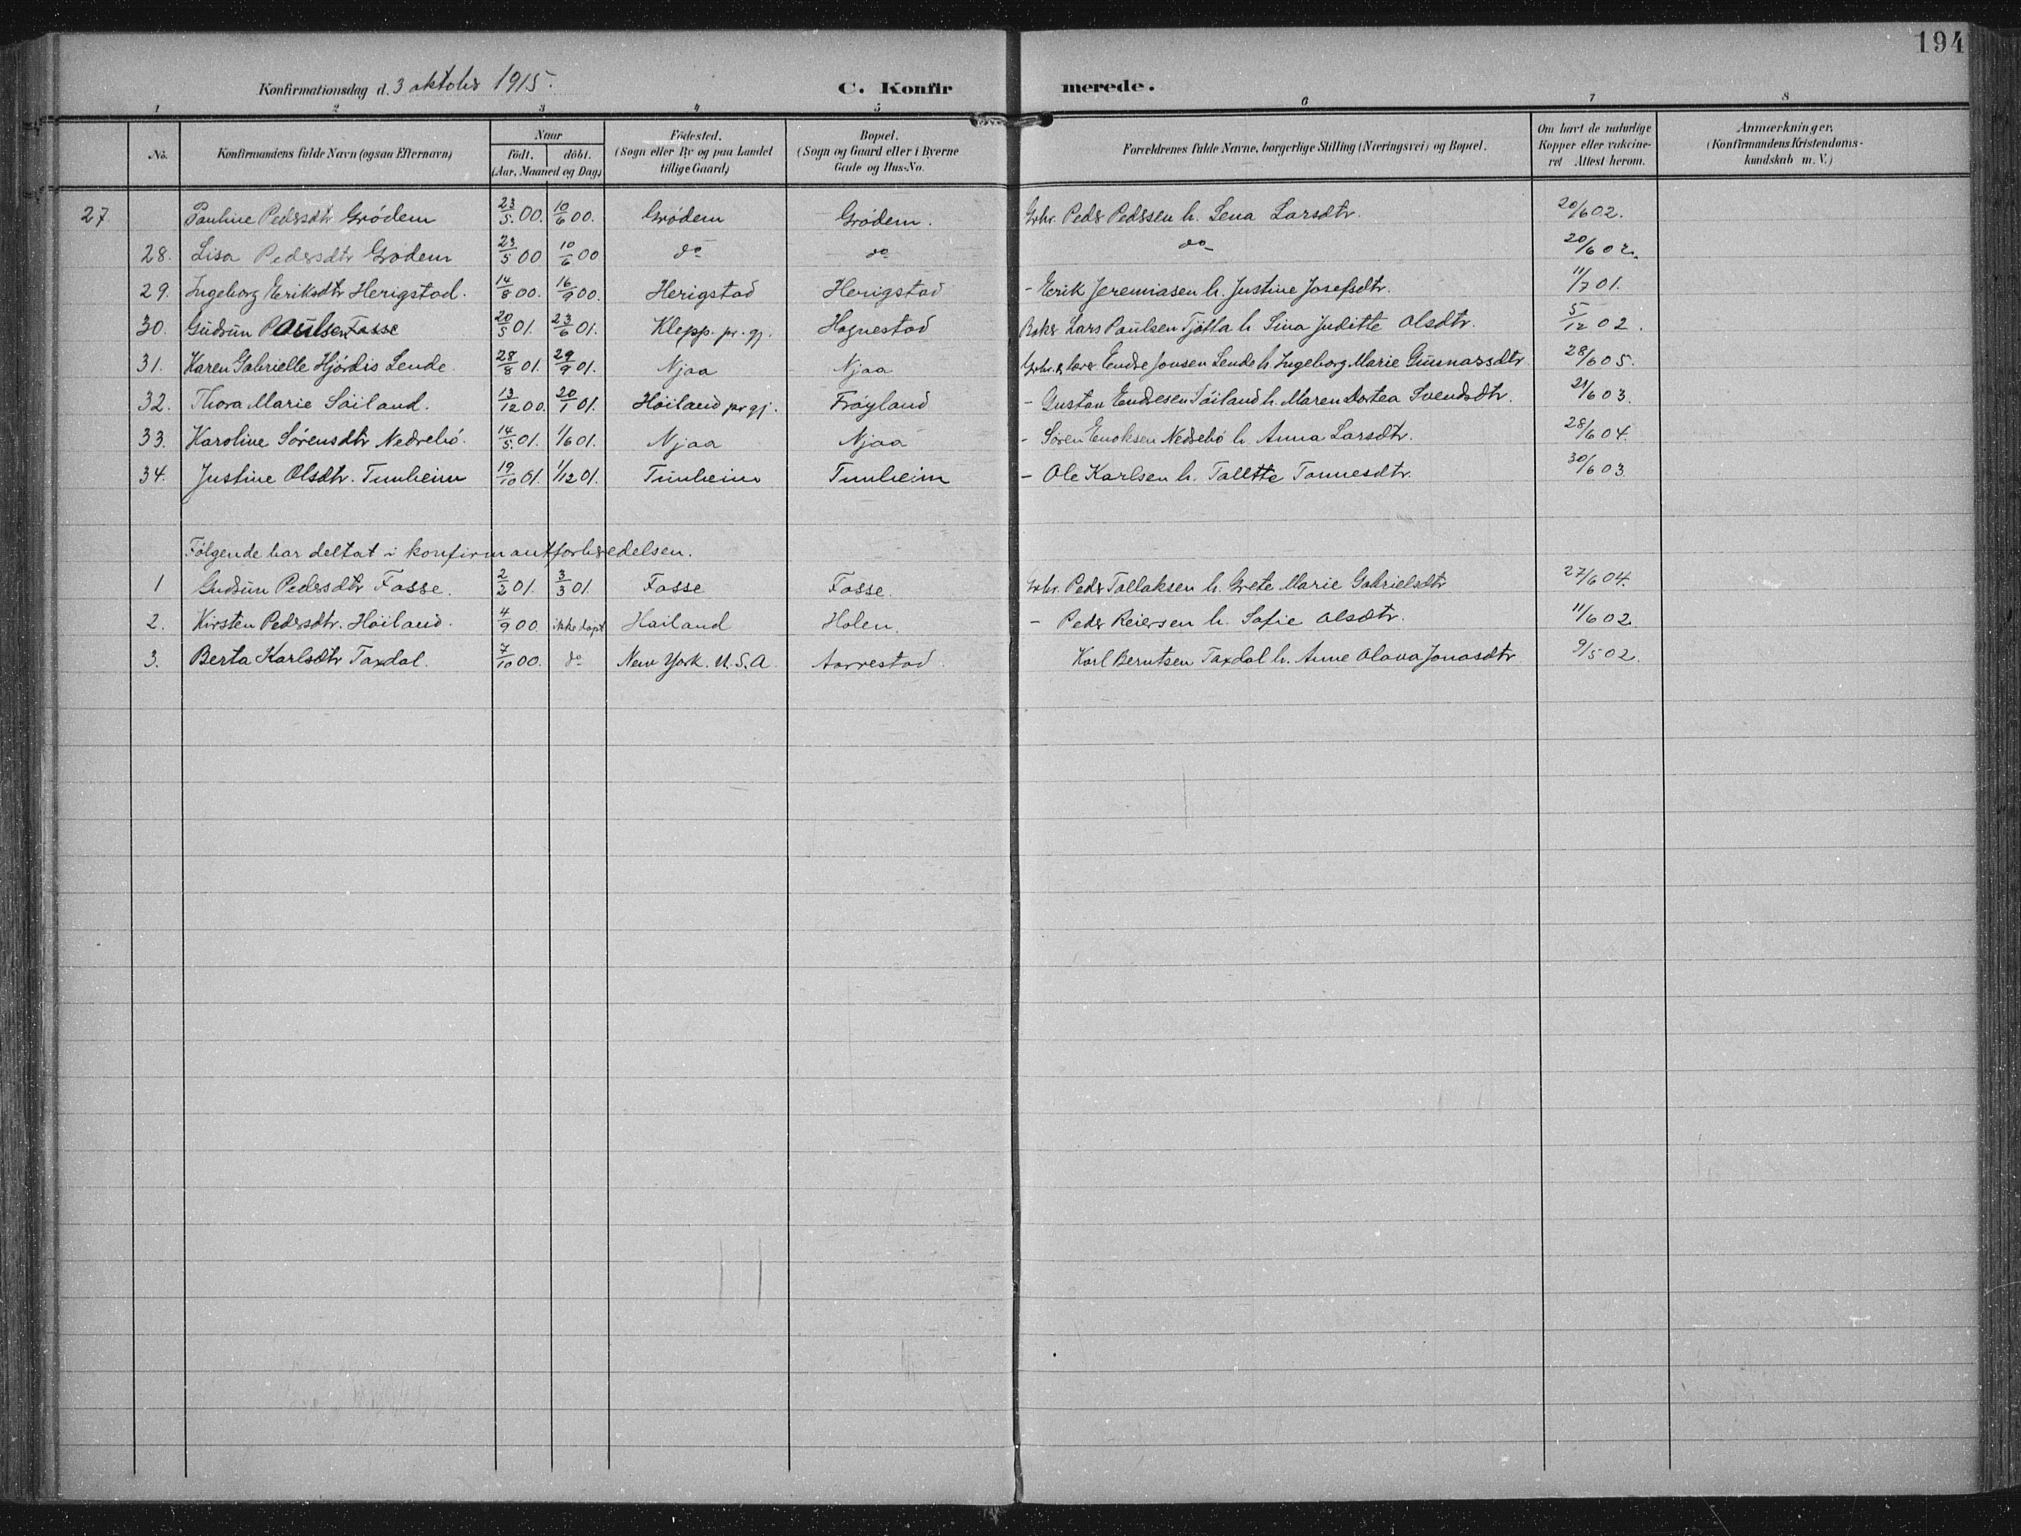 194
Konfirmationsdag d. 3 oktober 1915. C. Konfirmerede.
1 2 3 4 5 6 7 8
No. Konfirmandens fulde Navn (ogsaa Efternavn) Naar født. døbt. (Aar, Maaned og Dag) Fødested. (Sogn eller By og paa Landet tillige Gaard) Bopæl. (Sogn og Gaard eller i Byerne Gade og Hus-No. Forældrenes fulde Navne, borgerlige Stilling (Næringsvei) og Bopæl. Om havt de naturlige Kopper eller vakcineret Attest herom. Anmærkninger. (Konfirmandens Kristendomskundskab m. V.)
27. Pauline Pedersdtr Grødem 23/5 00. 10/6 00. Grødem Grødem. Grbr. Peder Pedersen h. Lena Larsdtr. 20/6 02.
28. Lisa Pedersdtr Grødem 23/5 00 10/6 00 do do do 20/6 02.
29. Ingeborg Eriksdtr Herigstad. 14/8 00. 16/9 00. Herigstad Herigstad - Erik Jeremiasen h. Justine Josefsdtr. 11/7 01.
30. Gudrun Paulsen Fosse 20/5 01. 23/6 01. Klepp. pr. gj. Hognestad Lars Paulsen Tjøtta h Sina Juditte Olsdtr. 5/12 02.
31. Karen Gabrielle Hjørdis Lende. 28/8 01. 29/9 01. Njaa Njaa Endre Jonsen Lende h. Ingeborg Marie Gunnarsdtr. 28/6 05.
32. Thora Marie Søiland. 13/12 00. 20/1 01. Høiland pr. gj. Frøyland - Gustav Endresen Søiland h. Maren Dortea Svendsdtr. 21/6 03.
33. Karoline Sørensdtr Nedrebø. 14/5 01. 1/6 01. Njaa Njaa - Søren Enoksen Nedrebø h. Anna Larsdtr. 28/6 04.
34. Justine Olsdtr. Tunheim 19/10 01. 1/12 01. Tunheim Tunheim - Ole Karlsen h. Talette Tønnesdtr. 30/6 03.
Følgende har deltat i konfirmantforberedelsen.
1 Gudrun Pedersdtr Fosse. 2/2 01. 3/3 01. Fosse Fosse. Grbr. Peder Tollaksen h. Grete Marie Gabrielsdtr 27/6 04.
2. Kirsten Pedersdtr. Høiland. 4/9 00. ikke døpt Høiland Holen. - Peder Reiersen h. Sofie Olsdtr. 11/6 02.
3. Berta Karlsdtr Taxdal. 7/10 00. do New York. U.S.A Aarrestad Karl Berntsen Taxdal h. Anne Olava Jonasdtr 9/5 02.